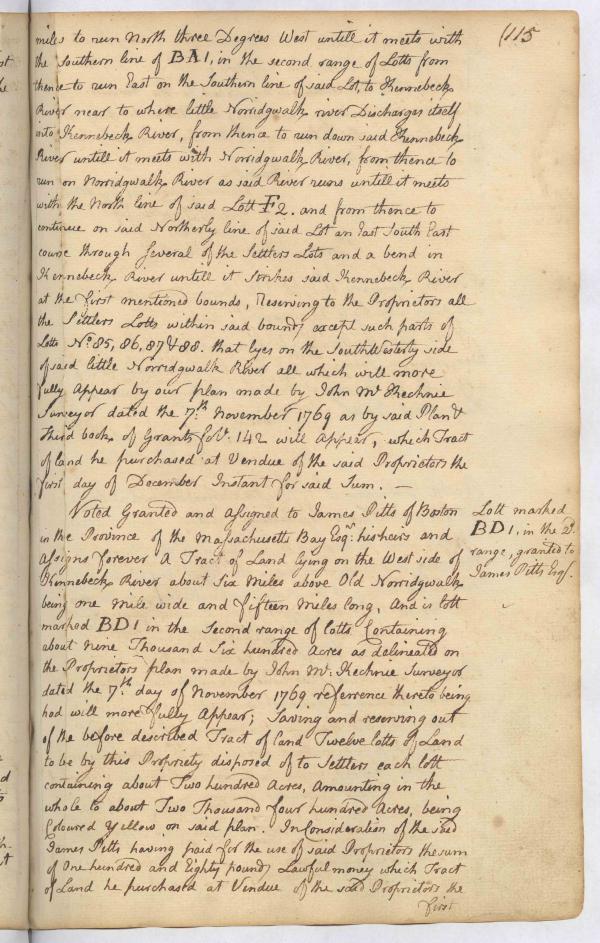 (115
miles to run North three Degrees West untill it meets with
the Southern line of BA1, in the second range of Lotts from
thence to run East on the Southern line of said Lot, to Kennebeck
River near to where little Norridgwalk river Discharges itself
into Kennebeck River, from thence to run down said Kennebeck
River untill it meets with Norridgwalk River, from thence to
run on Norridgwalk River as said River runs untill it meets
with the North line of said Lott F2. and from thence to
continue on said Northerly line of said Lot an East South East
course through several of the Settlers Lots and a bend in
Kennebeck River untill it Strikes said Kennebeck River
at the first mentioned bounds, Reserving to the Proprietors all
the Settlers Lotts within said bounds except such parts of
Lotts No. 85, 86, 87 & 88. that lyes on the South Westerly side
of said little Norridgwalk River all which will more
fully Appear by our plan made by John Mc. Kechnie
Surveyor dated the 7th. November 1769 as by said Plan &
Third book of Grants fo. 142 will Appear, which Tract
of land he purchased at Vendue of the said Proprietors the
first day of December Instant for said Sum. —
Voted Granted and assigned to James Pitts of Boston
in the Province of the Massachusetts Bay Esqr. his heirs and
Assigns forever A Tract of Land lying on the West side of
Kennebeck River about Six Miles above Old Norridgwalk
being one mile wide and fifteen Miles long, And is lott
marked BD1 in the Second range of lotts Containing
about Nine Thousand Six hundred Acres as delineated on
the Proprietors plan made by John Mc. Kechnie Surveyor
dated the 7th. day of November 1769 referrence thereto being
had will more fully Appear; Saving and reserving out
of the before described Tract of land Twelve lotts of Land
to be by this Propriety disposed of to Settlers each lott
containing about Two hundred Acres, Amounting in the
whole to about Two Thousand four hundred Acres, being
Coloured Yellow on said plan. In Consideration of the said
James Pitts having paid for the use of said Proprietors the sum
of One hundred and Eighty pounds Lawful money which Tract
of Land he purchased at Vendue of the said Proprietors the
first
Lott marked
BD1, in the 2d.
range, granted to
James Pitts Esqr.